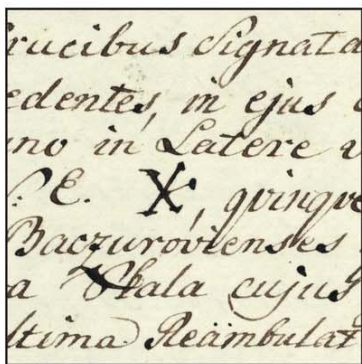 Crucibus Signata
edentes, in ejus
uno in Latere
P. E. X, quinque
BaczuroviensES
a Skala cujus
ltima Reambulat